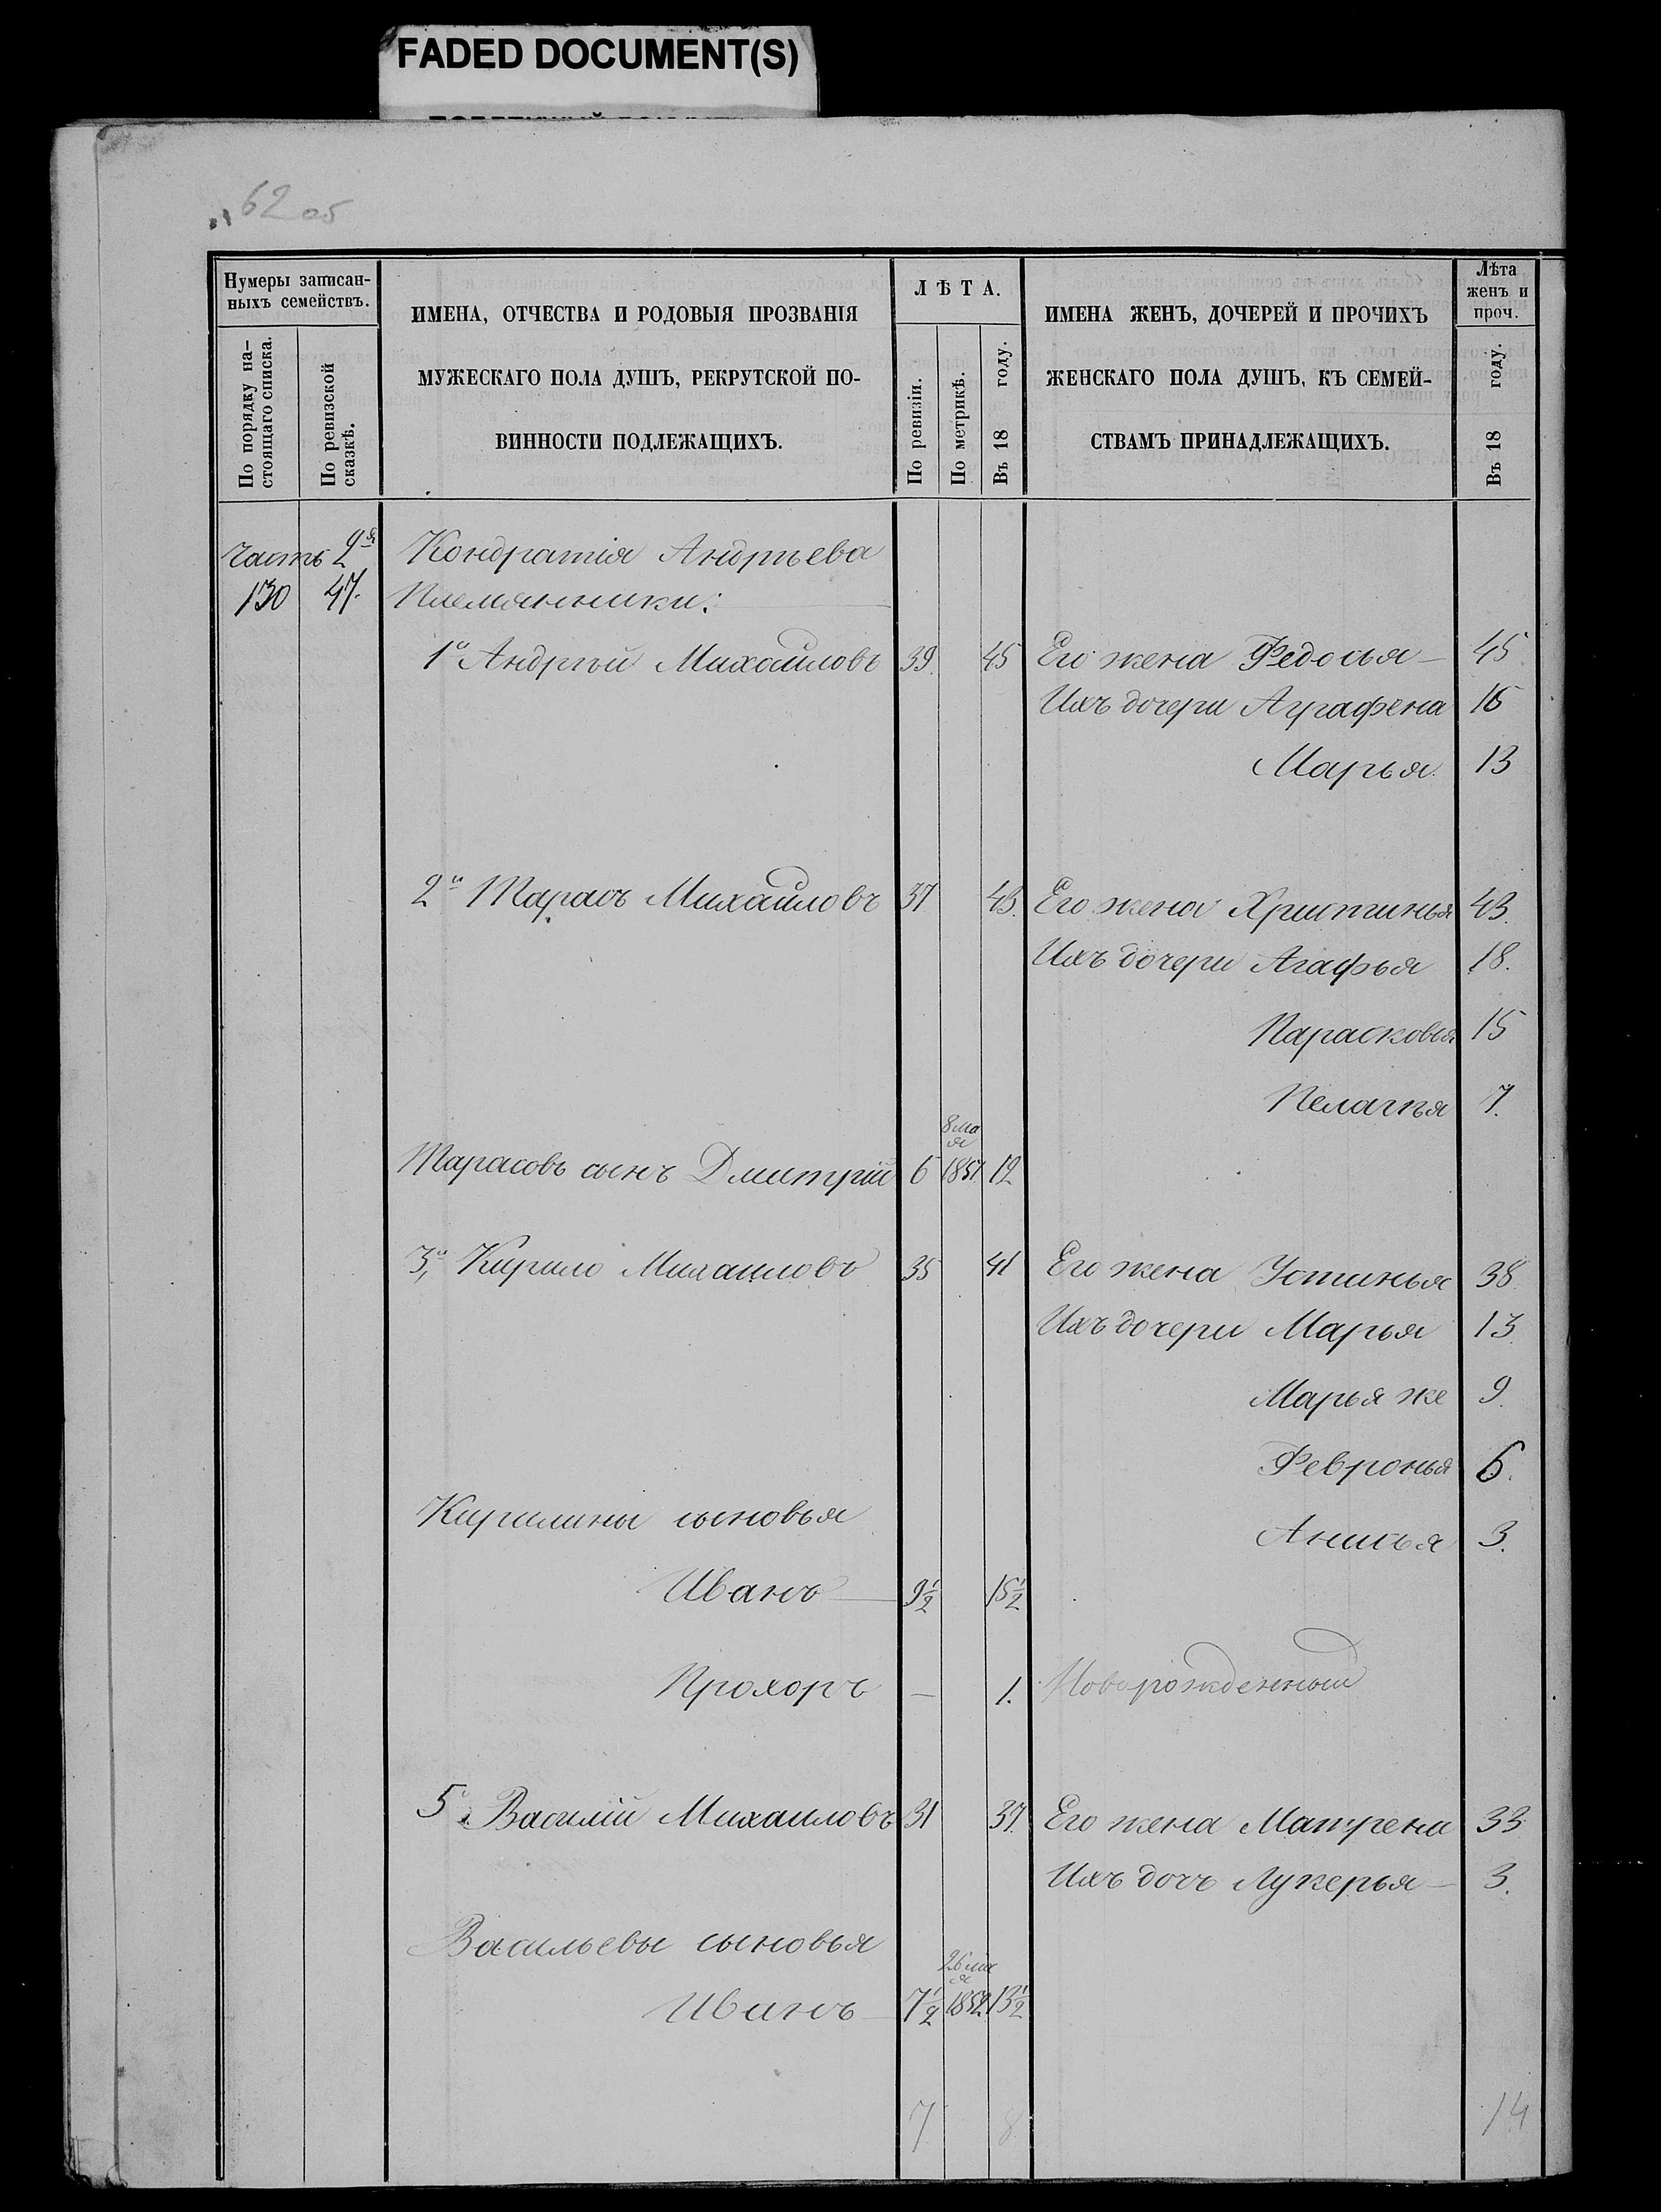 FADED DOCUMENT(S)
62 об
Нумеры записан-
ныхъ семействъ.
По порядку на-
стоящаго списка.
По ревизской
сказкѣ.
ИМЕНА, ОТЧЕСТВА И РОДОВЫЯ ПРОЗВАНІЯ
МУЖЕСКАГО ПОЛА ДУШЪ, РЕКРУТСКОЙ ПО-
ВИННОСТИ ПОДЛЕЖАЩИХЪ.
ЛѢТА.
По ревизіи.
По метрикѣ.
Въ 18 году.
ИМЕНА ЖЕНЪ, ДОЧЕРЕЙ И ПРОЧИХЪ
ЖЕНСКАГО ПОЛА ДУШЪ, КЪ СЕМЕЙ-
СТВАМЪ ПРИНАДЛЕЖАЩИХЪ.
Лѣта
женъ и
проч.
Въ 18 году.
Часть 2я Кондратія Андрѣева
130 47. Племянники:
1й Андрѣй Михайловъ 39. 45 Его жена Федосья — 45
Ихъ дочери Аграфена 16
Марья. 13
2й Тарасъ Михайловъ 37 43. Его жена Христинья 43.
Ихъ дочери Агафья 18.
Парасковья 15
Пелагѣя 7.
8 мая
Тарасовъ сынъ Дмитрій 6 1851 12
3й Кирило Михаиловъ 35 41 Его жена Устинья 38.
Ихъ дочери Марья 13.
Марья же 9.
Февронья 6.
Кирилины сыновья Анисья 3.
Иванъ — 9½ 15½
Прохоръ — 1. Новорожденный
5й Василій Михаиловъ 31 37. Его жена Матрена 33
Ихъ дочь Лукерья — 3.
Васильевы сыновья
26 мая
Иванъ — 7½ 1852 13½
7 8 14